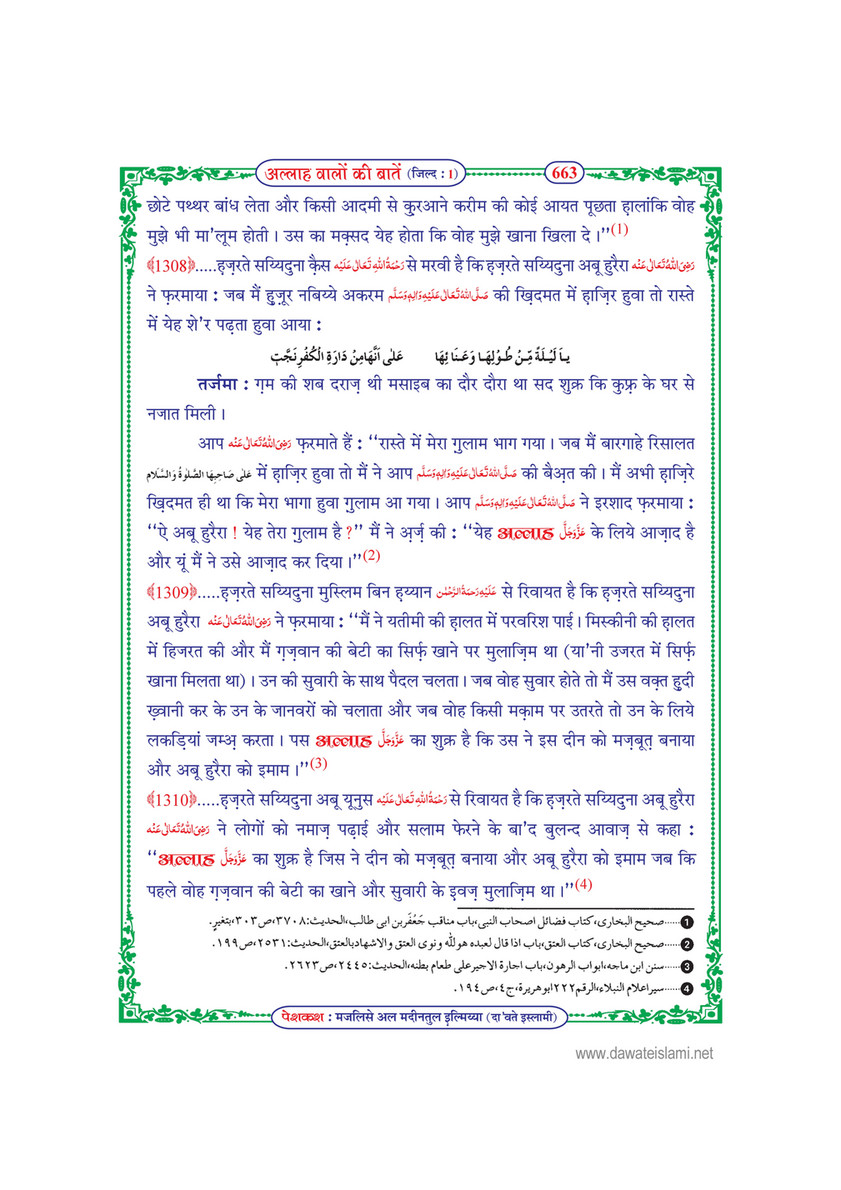 अल्लाह वालों की बातें (जिल्द : 1) 663
छोटे पथ्थर बांध लेता और किसी आदमी से क़ुरआने करीम की कोई आयत पूछता ह़ालांकि वोह
मुझे भी मा'लूम होती । उस का मक़्सद येह होता कि वोह मुझे खाना खिला दे ।"(1)
﴾1308﴿.....ह़ज़रते सय्यिदुना क़ैस رَحْمَةُ اللهِ تَعَالٰى عَلَيْه से मरवी है कि ह़ज़रते सय्यिदुना अबू हुरैरा رَضِىَ اللهُ تَعَالٰى عَنْه
ने फ़रमाया : जब मैं हुज़ूर नबिय्ये अकरम صَلَّى اللهُ تَعَالٰى عَلَيْهِ وَاٰلِهٖ وَسَلَّم की ख़िदमत में ह़ाज़िर हुवा तो रास्ते
में येह शे'र पढ़ता हुवा आया :
يَا لَيْلَةً مِّنْ طُوْلِهَا وَعَنَائِهَا عَلٰى اَنَّهَا مِنْ دَارَةِ الْكُفْرِ نَجَّتِ
तर्जमा : ग़म की शब दराज़ थी मसाइब का दौर दौरा था सद शुक्र कि कुफ़्र के घर से
नजात मिली ।
आप رَضِىَ اللهُ تَعَالٰى عَنْه फ़रमाते हैं : "रास्ते में मेरा ग़ुलाम भाग गया । जब मैं बारगाहे रिसालत
عَلٰى صَاحِبِهَا الصَّلٰوةُ وَالسَّلَام में ह़ाज़िर हुवा तो मैं ने आप صَلَّى اللهُ تَعَالٰى عَلَيْهِ وَاٰلِهٖ وَسَلَّم की बैअ़त की । मैं अभी ह़ाज़िरे
ख़िदमत ही था कि मेरा भागा हुवा ग़ुलाम आ गया । आप صَلَّى اللهُ تَعَالٰى عَلَيْهِ وَاٰلِهٖ وَسَلَّم ने इरशाद फ़रमाया :
"ऐ अबू हुरैरा ! येह तेरा ग़ुलाम है ?" मैं ने अ़र्ज़ की : "येह अल्लाह عَزَّوَجَلَّ के लिये आज़ाद है
और यूं मैं ने उसे आज़ाद कर दिया ।"(2)
﴾1309﴿.....ह़ज़रते सय्यिदुना मुस्लिम बिन ह़य्यान عَلَيْهِ رَحْمَةُ الرَّحْمٰن से रिवायत है कि ह़ज़रते सय्यिदुना
अबू हुरैरा رَضِىَ اللهُ تَعَالٰى عَنْه ने फ़रमाया : "मैं ने यतीमी की ह़ालत में परवरिश पाई । मिस्कीनी की ह़ालत
में हिजरत की और मैं ग़ज़वान की बेटी का सिर्फ़ खाने पर मुलाज़िम था (या'नी उजरत में सिर्फ़
खाना मिलता था) । उन की सुवारी के साथ पैदल चलता । जब वोह सुवार होते तो मैं उस वक़्त हुदी
ख़्वानी कर के उन के जानवरों को चलाता और जब वोह किसी मक़ाम पर उतरते तो उन के लिये
लकड़ियां जम्अ़ करता । पस अल्लाह عَزَّوَجَلَّ का शुक्र है कि उस ने इस दीन को मज़बूत़ बनाया
और अबू हुरैरा को इमाम ।"(3)
﴾1310﴿.....ह़ज़रते सय्यिदुना अबू यूनुस رَحْمَةُ اللهِ تَعَالٰى عَلَيْه से रिवायत है कि ह़ज़रते सय्यिदुना अबू हुरैरा
رَضِىَ اللهُ تَعَالٰى عَنْه ने लोगों को नमाज़ पढ़ाई और सलाम फेरने के बा'द बुलन्द आवाज़ से कहा :
"अल्लाह عَزَّوَجَلَّ का शुक्र है जिस ने दीन को मज़बूत़ बनाया और अबू हुरैरा को इमाम जब कि
पहले वोह ग़ज़वान की बेटी का खाने और सुवारी के इ़वज़ मुलाज़िम था ।"(4)
❶......صحيح البخارى، كتاب فضائل اصحاب النبى، باب مناقب جَعْفَر بن ابى طالب، الحديث: ٣٧٠٨، ص٣٠٣، بتغيرٍ.
❷......صحيح البخارى، كتاب العتق، باب اذا قال لعبده هولله و نوى العتق والاشهاد بالعتق، الحديث: ٢٥٣١، ص١٩٩.
❸......سنن ابن ماجه، ابواب الرهون، باب اجارة الاجير على طعام بطنه، الحديث: ٢٤٤٥، ص٢٦٢٣.
❹......سير اعلام النبلاء، الرقم٢٢٢ ابوهريرة، ج٤، ص١٩٤.
पेशकश : मजलिसे अल मदीनतुल इ़ल्मिय्या (दा'वते इस्लामी)
www.dawateislami.net